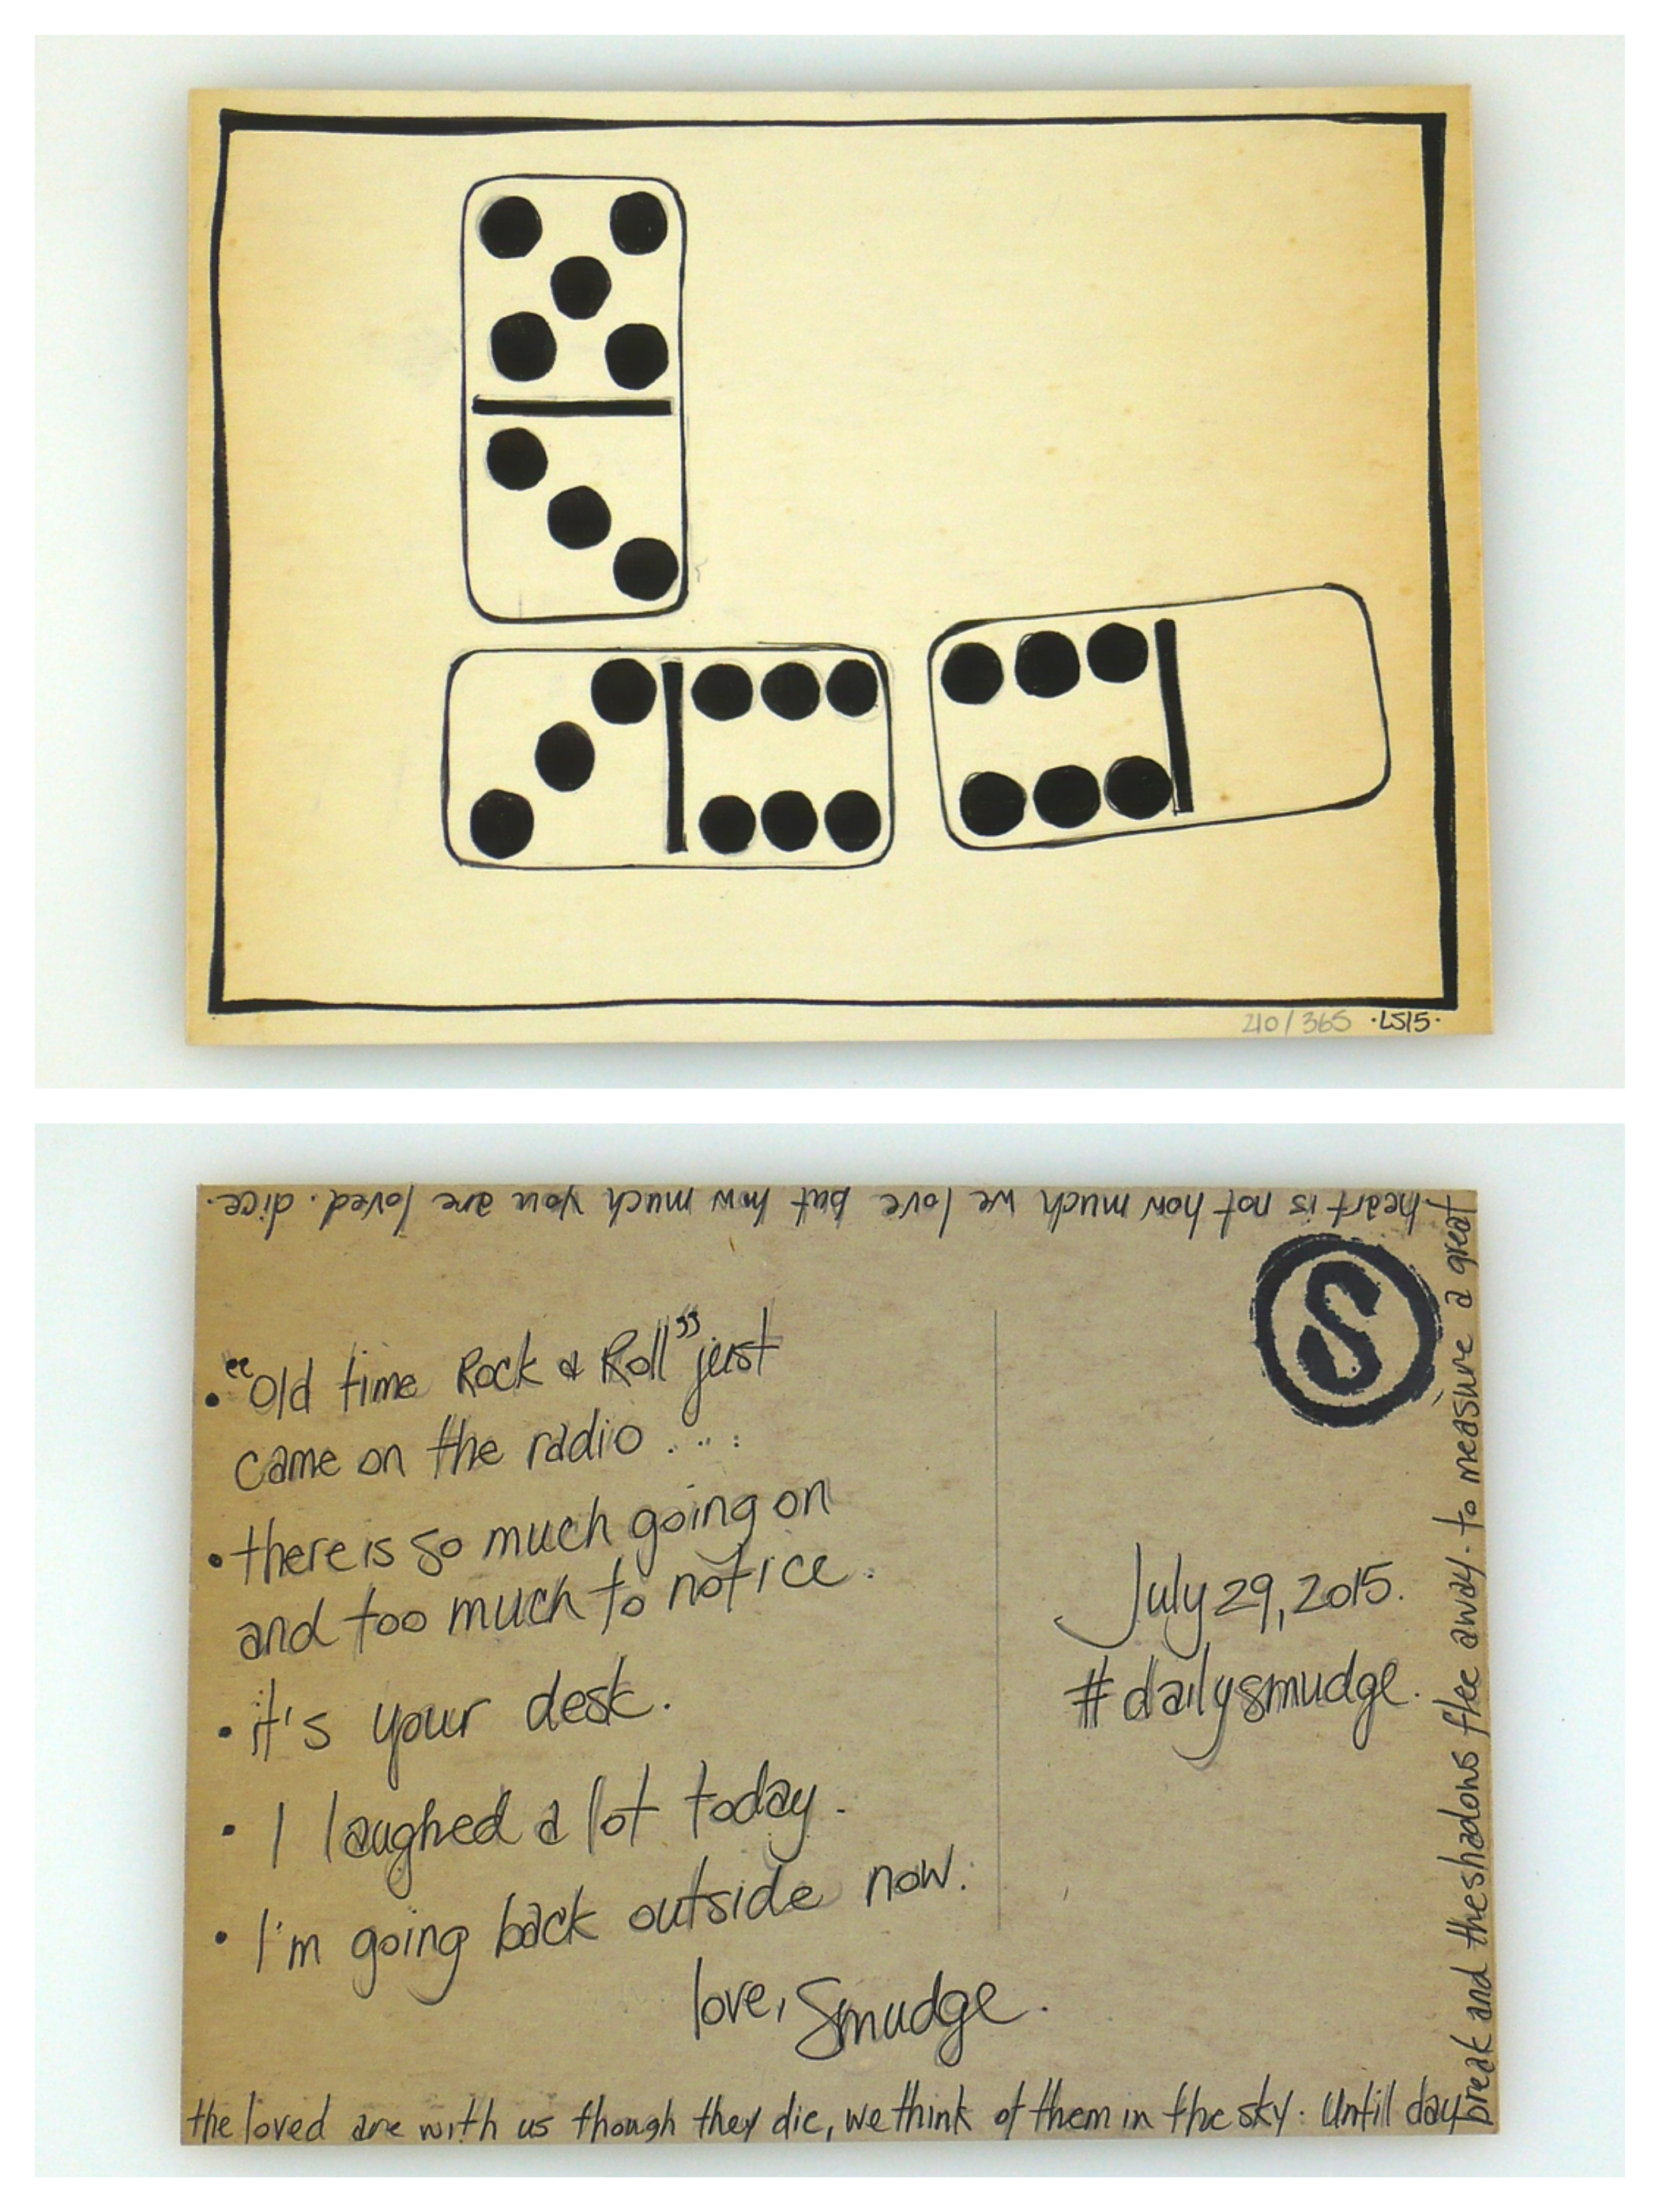 210/365 ·LS15·
heart is not how much we love but how much you are loved. dice.
S
• "Old time Rock & Roll" just
came on the radio....
• there is so much going on
and too much to notice.
• it's your desk.
• I laughed a lot today.
• I'm going back outside now.
love, Smudge.
July 29, 2015.
#dailysmudge.
the loved are with us though they die, we think of them in the sky. Untill day
break and the shadows flee away. to measure a great